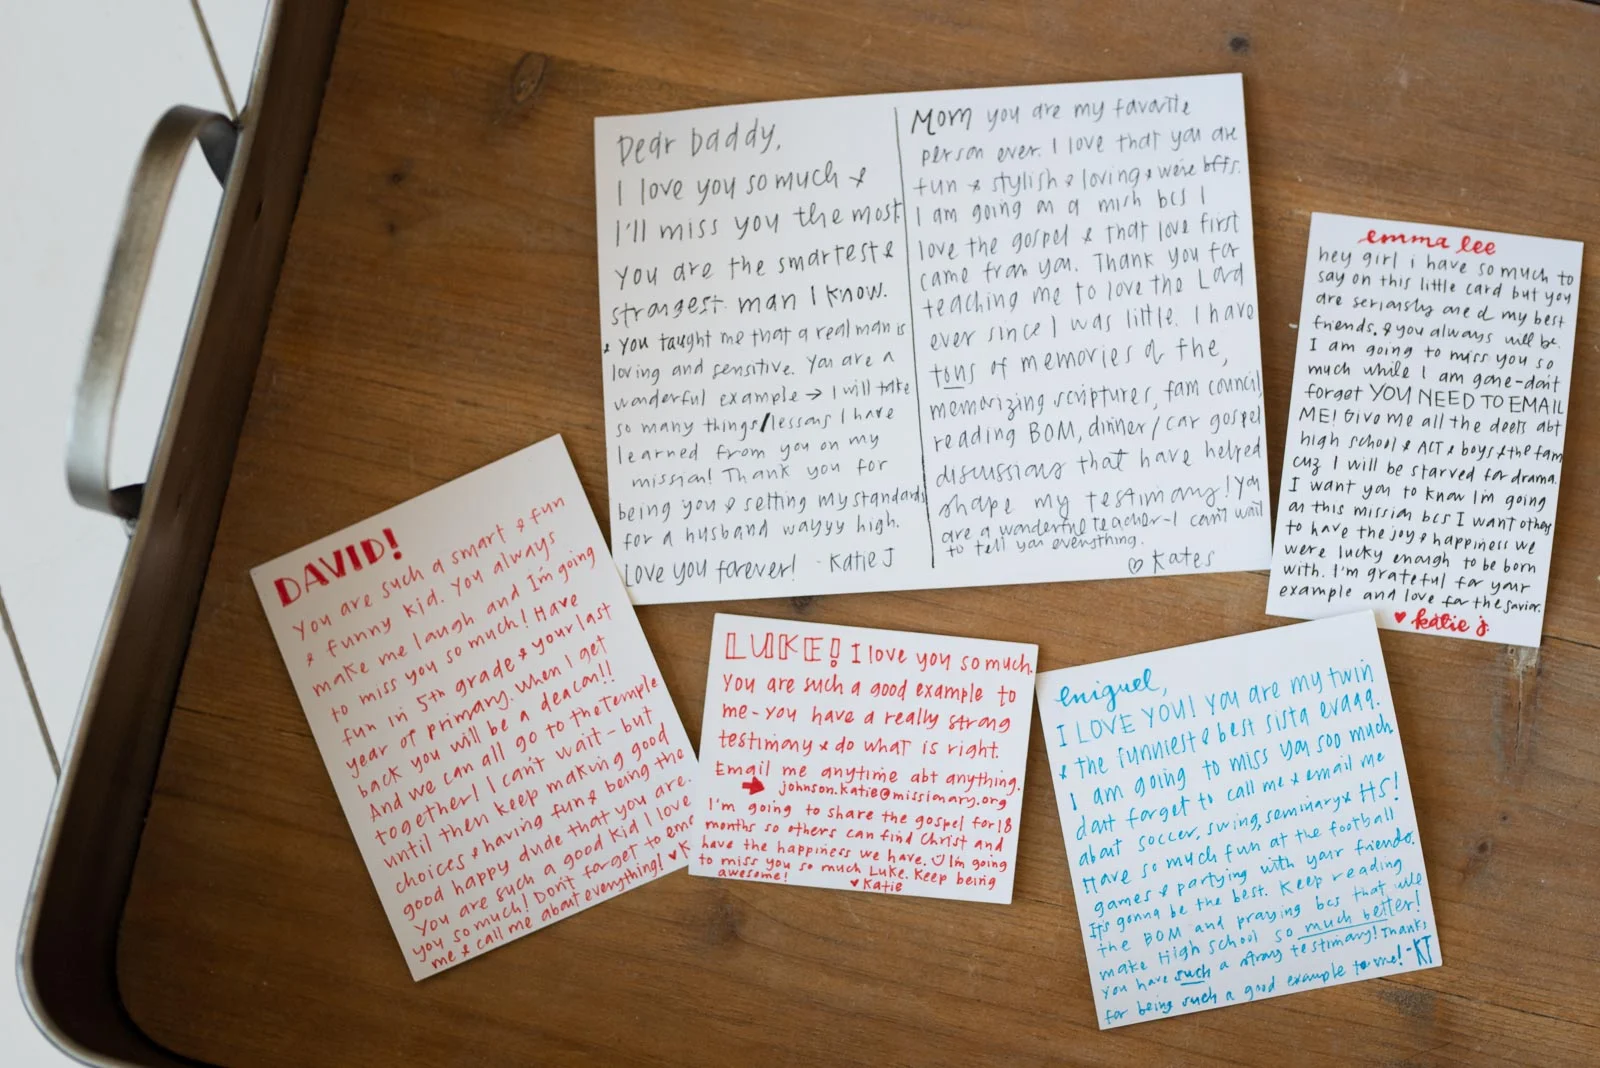 Dear Daddy,
I love you so much &
I'll miss you the most
you are the smartest &
strongest man I know.
& you taught me that a real man is
loving and sensitive. You are a
wonderful example → I will take
so many things/lessons I have
learned from you on my
mission! Thank you for
being you & setting my standards
for a husband wayyy high.
Love you forever! - Katie J
Mom you are my favorite
person ever. I love that you are
fun & stylish & loving & we're bffs.
I am going on a mish bcs I
love the gospel & that love first
came from you. Thank you for
teaching me to love the Lord
ever since I was little. I have
tons of memories of the,
memorizing scriptures, fam council,
reading BOM, dinner/car gospel
discussions that have helped
shape my testimony! You
are a wonderful teacher - I can't wait
to tell you everything.
♡ Kates
emma lee
hey girl i have so much to
say on this little card but you
are seriously one of my best
friends. & you always will be.
I am going to miss you so
much while I am gone - don't
forget YOU NEED TO EMAIL
ME! Give me all the deets abt
high school & ACT & boys & the fam
cuz I will be starved for drama.
I want you to know I'm going
on this mission bcs I want others
to have the joy & happiness we
were lucky enough to be born
with. I'm grateful for your
example and love for the Savior.
♥ katie j.
DAVID!
You are such a smart & fun
& funny kid. You always
make me laugh and I'm going
to miss you so much! Have
fun in 5th grade & your last
year of primary. When I get
back you will be a deacon!!
And we can all go to the Temple
together! I can't wait - but
until then keep making good
choices & having fun & being the
good happy dude that you are.
You are such a good kid I love
you so much! Don't forget to
me & call me about everything! ♥
LUKE! I love you so much.
You are such a good example to
me - you have a really strong
testimony & do what is right.
Email me anytime abt anything.
➡ johnson.katie@missionary.org
I'm going to share the gospel for 18
months so others can find Christ and
have the happiness we have. ☺ I'm going
to miss you so much Luke. Keep being
awesome!
♥ Katie
eniguel,
I LOVE YOU! You are my twin
& the funniest & best sista evaaa.
I am going to miss you soo much
don't forget to call me & email me
about soccer, swing, seminary & HS!
Have so much fun at the football
games & partying with your friends.
It's gonna be the best. Keep reading
the BOM and praying bcs that will
make High school so much better!
You have such a strong testimony! Thanks
for being such a good example to me! - KT